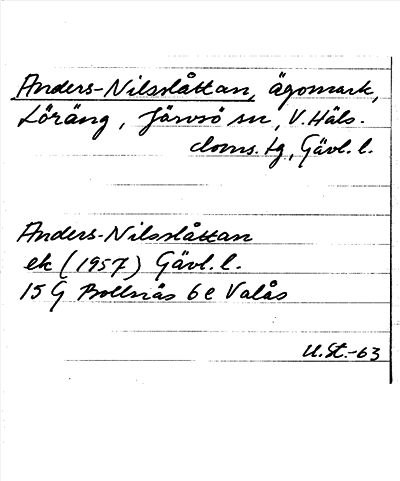 Anders-Nilsslåttan, ägomark,
Löräng, Järvsö sn, V. Häls.
doms. tg, Gävl. l.
Anders-Nilsslåttan
ek (1957) Gävl. l.
15 G Bollnäs 6 e Valås
U. St. -63